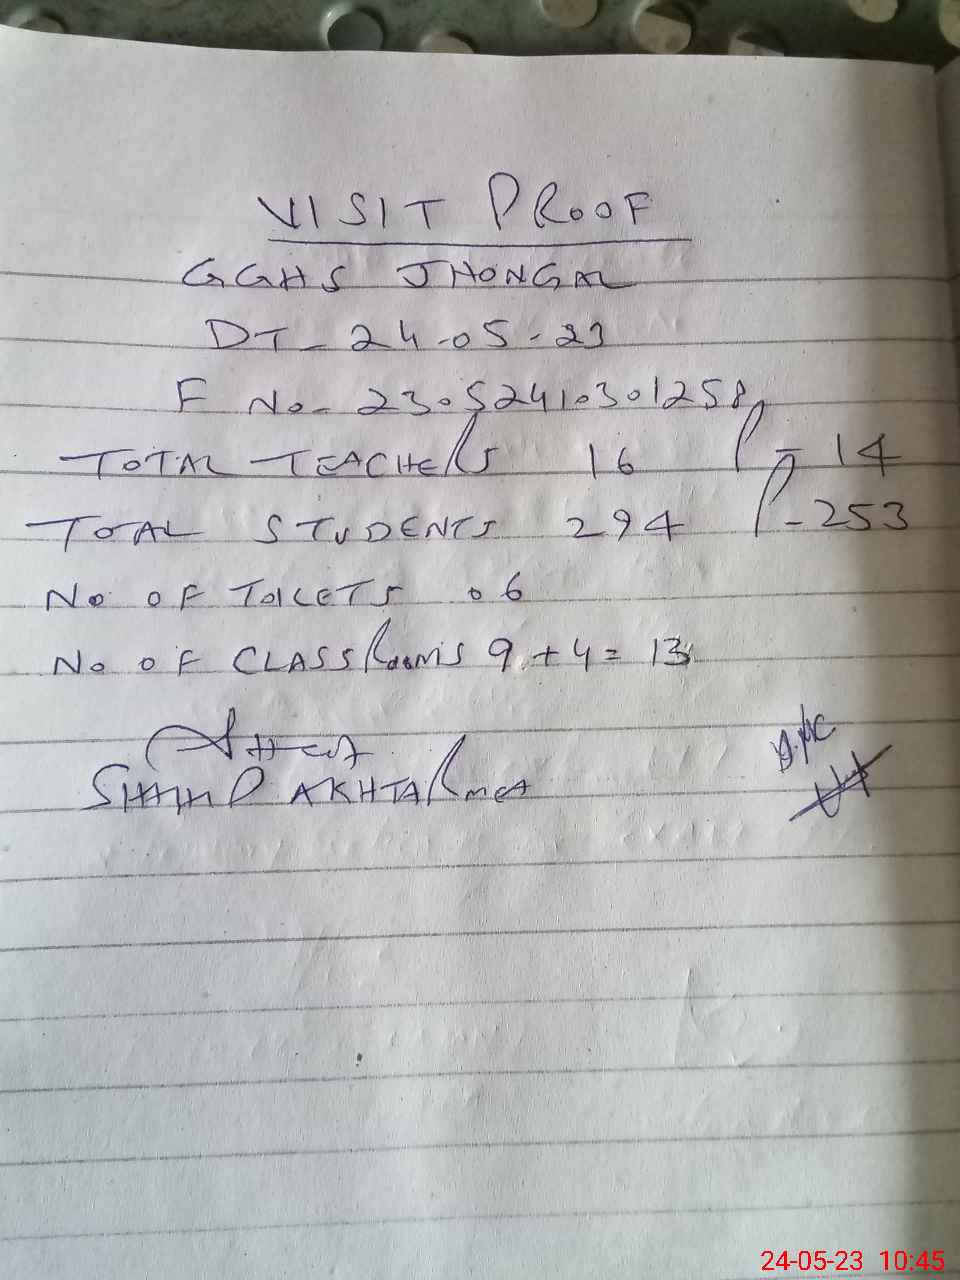 VISIT PROOF
GGHS JHONGAL
DT - 24-05-23
F No- 23052410301258
TOTAL TEACHERS 16 P - 14
TOTAL STUDENTS 294 P - 253
No OF TOILETS 06
No OF CLASS Rooms 9 + 4 = 13
AKHTAR MEA
24-05-23 10:45